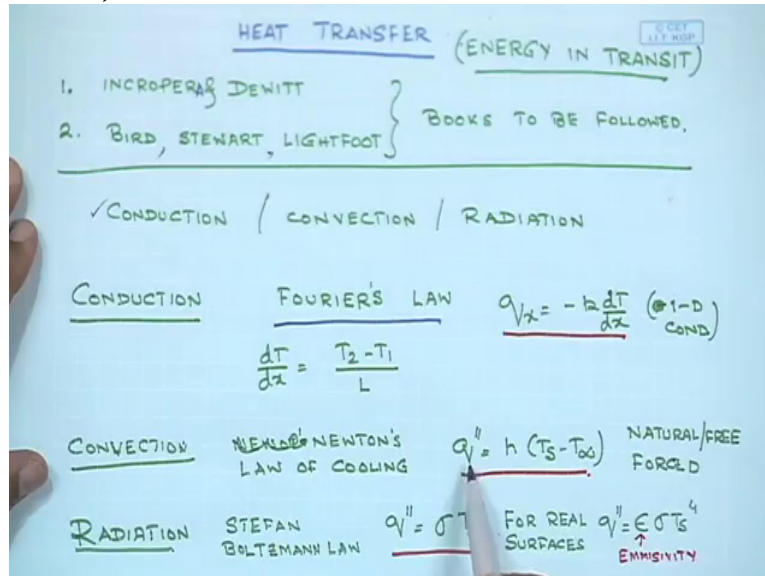 HEAT TRANSFER (ENERGY IN TRANSIT)
© CET
I.I.T. KGP
1. INCROPERA & DEWITT
2. BIRD, STEWART, LIGHTFOOT } BOOKS TO BE FOLLOWED.
✓CONDUCTION / CONVECTION / RADIATION
CONDUCTION FOURIER'S LAW qx = -k dT/dx (1-D COND)
dT/dx = (T2 - T1)/L
CONVECTION NEWTON'S LAW OF COOLING q" = h (Ts - T∞) NATURAL/FREE FORCED
RADIATION STEFAN BOLTZMANN LAW q" = σ T FOR REAL SURFACES q" = ϵ σ Ts⁴
EMMISIVITY